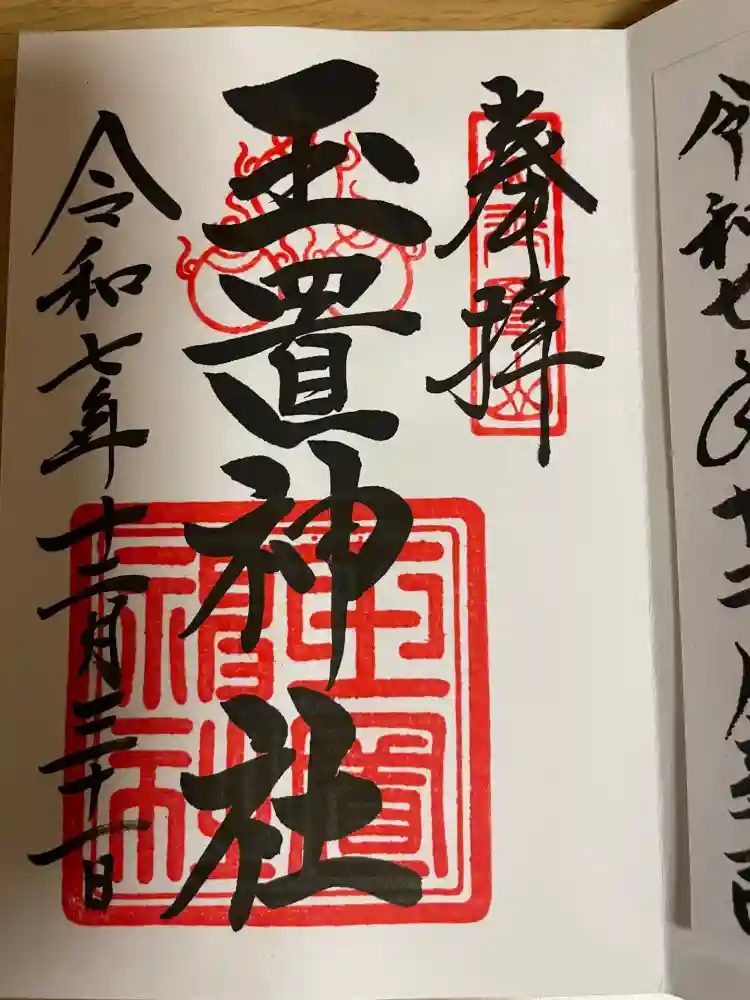 奉拝
玉置神社
令和七年十二月三十一日
玉置
神社
令和七年十二月